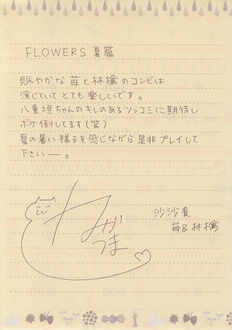 FLOWERS 夏篇
賑やかな苺と林檎のコンビは
演じていてとても楽しいです。
八重垣ちゃんのキレのあるツッコミに期待し
ボケ倒してます(笑)
夏の暑い様子を感じながら是非プレイして
下さいー。
沙沙貴
苺&林檎